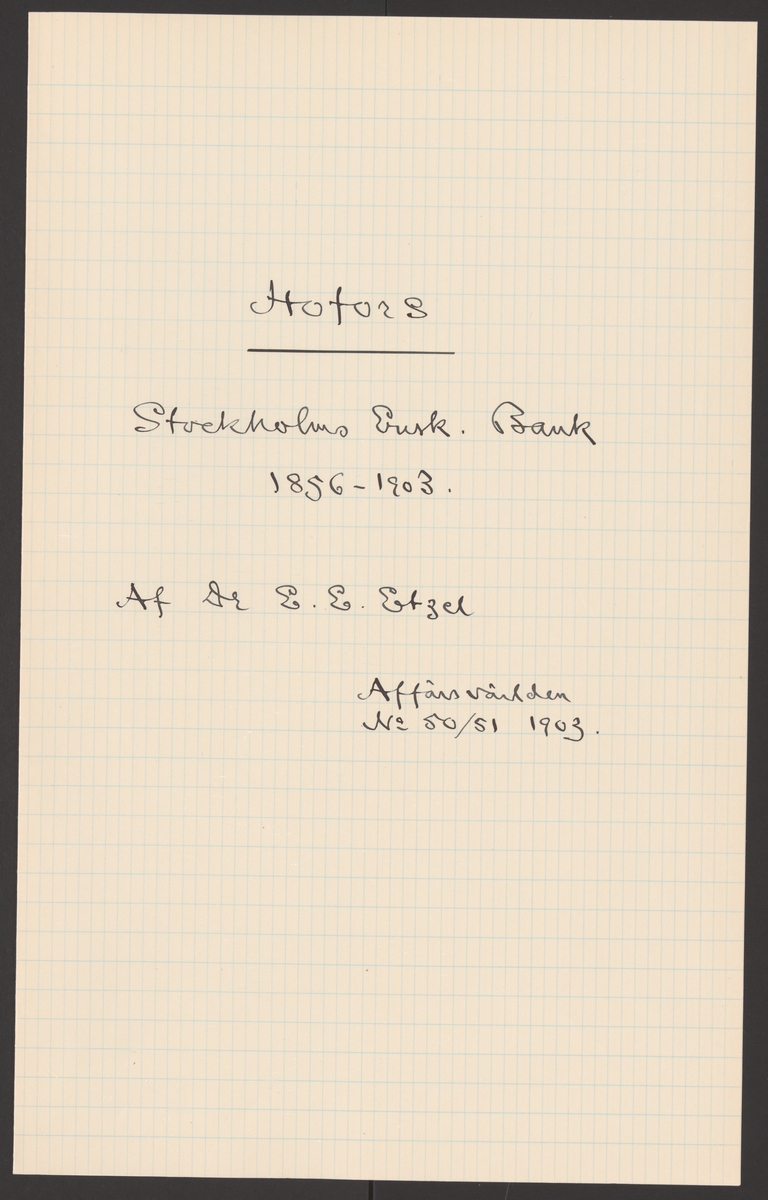 Hofors
Stockholms Ensk. Bank
1856-1903.
Af Dr E. E. Etzel
Affärsvärlden
No 50/51 1903.